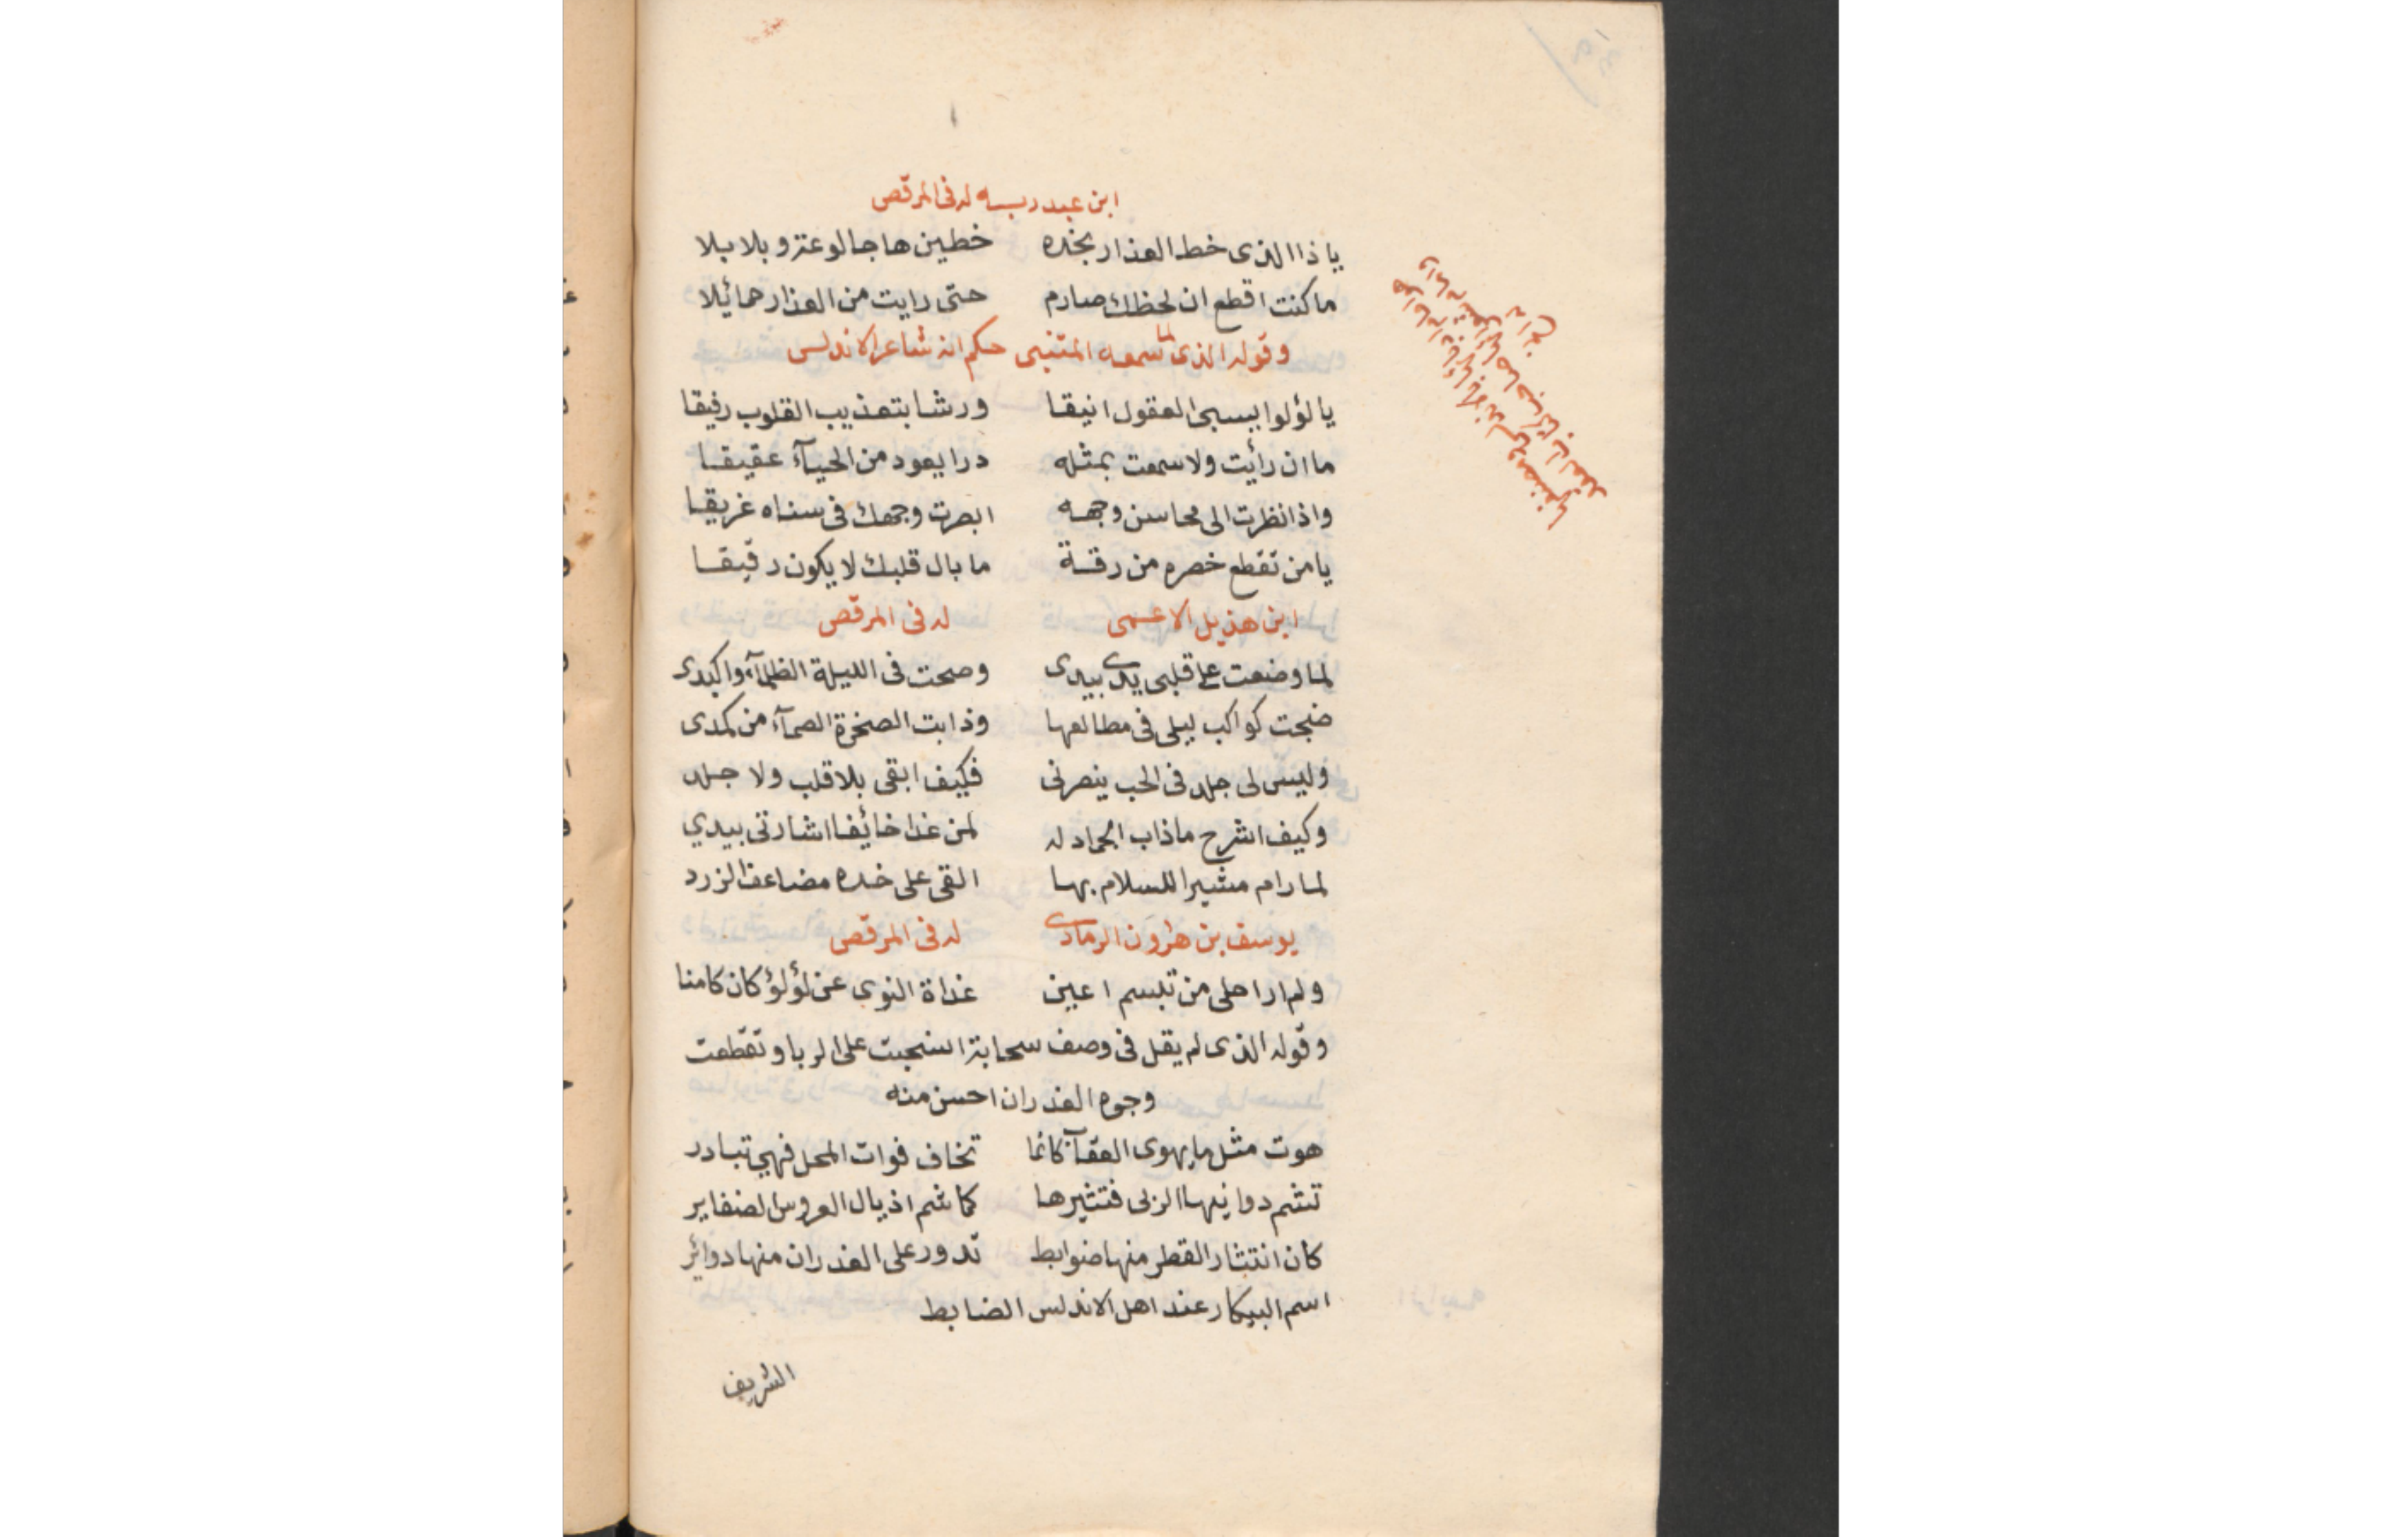 ابن عبد ربه له فى المرقص
يا ذا الذى خط العذار بخده خطين هاجا لوعة وبلابلا
ما كنت اقطع ان لحظك صارم حتى رايت من العذار حمائيلا
وقوله الذى لما سمعه المتنبى حكم انه شاعر الاندلس
يا لؤلوا يسبى العقول انيقا ورشا بتعذيب القلوب رفيقا
ما ان رأيت ولا سمعت بمثله درا يعود من الحيآء عقيقا
واذا نظرت الى محاسن وجهه ابصرت وجهك فى سناه غريقا
يا من تقطع خصره من رقة ما بال قلبك لا يكون رقيقا
ابن هذيل الاعمى له فى المرقص
لما وضعت على قلبى يدى بيدى وصحت فى الليلة الظلمآء واكبدى
ضجت كواكب ليلى فى مطالعها وذابت الصخرة الصمآء من كمدى
وليس لى جلد فى الحب ينصرنى فكيف ابقى بلا قلب ولا جلد
وكيف اشرح ماذاب الجماد له لمن غدا خائفا اشارتى بيدي
لما رام مشيرا للسلام بها القى على خده مضاعف الزرد
يوسف بن هرون الرمادى له فى المرقص
ولم ار احلى من تبسم اعين غداة النوى عن لؤلؤ كان كامنا
وقوله الذى لم يقل فى وصف سحابة انسحبت على الربا وتقطعت
وجوه الغدران احسن منه
هوت مثل ما يهوى العقاب كانما تخاف فوات المحل فهى تبادر
تشم دوانيها الربى فتثيرها كما شم اذيال العروس الضفاير
كان انتثار القطر منها ضوابط تدور على الغدران منها دوائر
اسم البيكار عند اهل الاندلس الضابط
الشريف